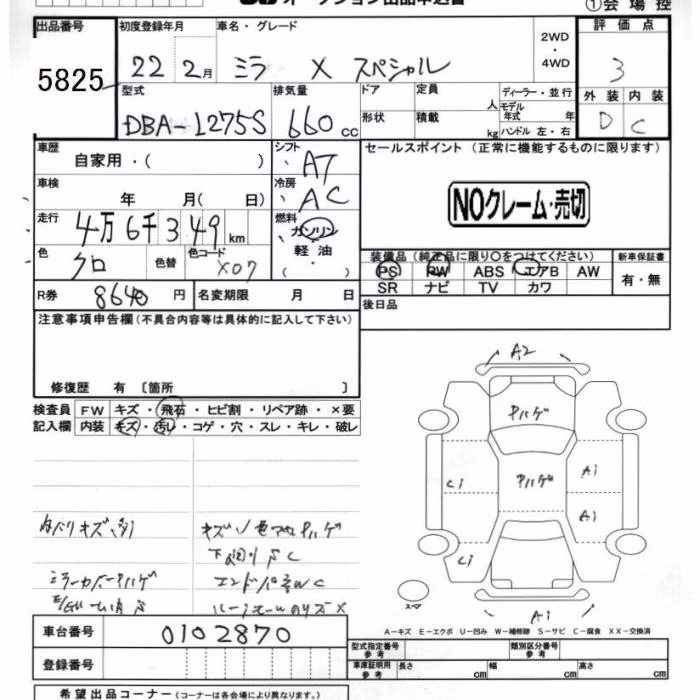 オークション出品申込書
①会場控
出品番号
5825
初度登録年月
22 2月
車名・グレード
ミラ X スペシャル
2WD
・
4WD
評価点
3
外装 内装
D C
型式
DBA-L275S
排気量
660 cc
ドア
形状
定員 人
積載 kg
ディーラー・並行
モデル年式 年
ハンドル 左・右
車歴
自家用・( )
シフト
AT
セールスポイント (正常に機能するものに限ります)
NOクレーム・売切
車検
年 月( 日)
冷房
AC
走行
4万6千349 km
燃料
ガソリン
軽油
・( )
色
クロ
色替
色コード
X07
装備品 (純正品に限り〇をつけてください)
PS PW ABS エアB AW
SR ナビ TV カワ
新車保証書
有・無
R券
8640 円
名変期限 月 日
後日品
注意事項申告欄 (不具合内容等は具体的に記入して下さい)
修復歴 有 〔箇所 〕
検査員
記入欄
FW キズ・飛石・ヒビ割・リペア跡・×要
内装 キズ・汚レ・コゲ・穴・スレ・キレ・破レ
内ハリキズ多
ミラーカバーハゲ
下廻りSC
A2
Pハゲ
Pハゲ
Ci
Ci
A1
A1
A1
スマ
A−キズ E−エクボ U−凹み W−補修跡 S−サビ C−腐食 XX−交換済
車台番号
0102870
登録番号
型式指定番号 参考
類別区分番号 参考
車庫証明用 参考
長さ cm
幅 cm
高さ cm
希望出品コーナー (コーナーは各会場により異なります。)